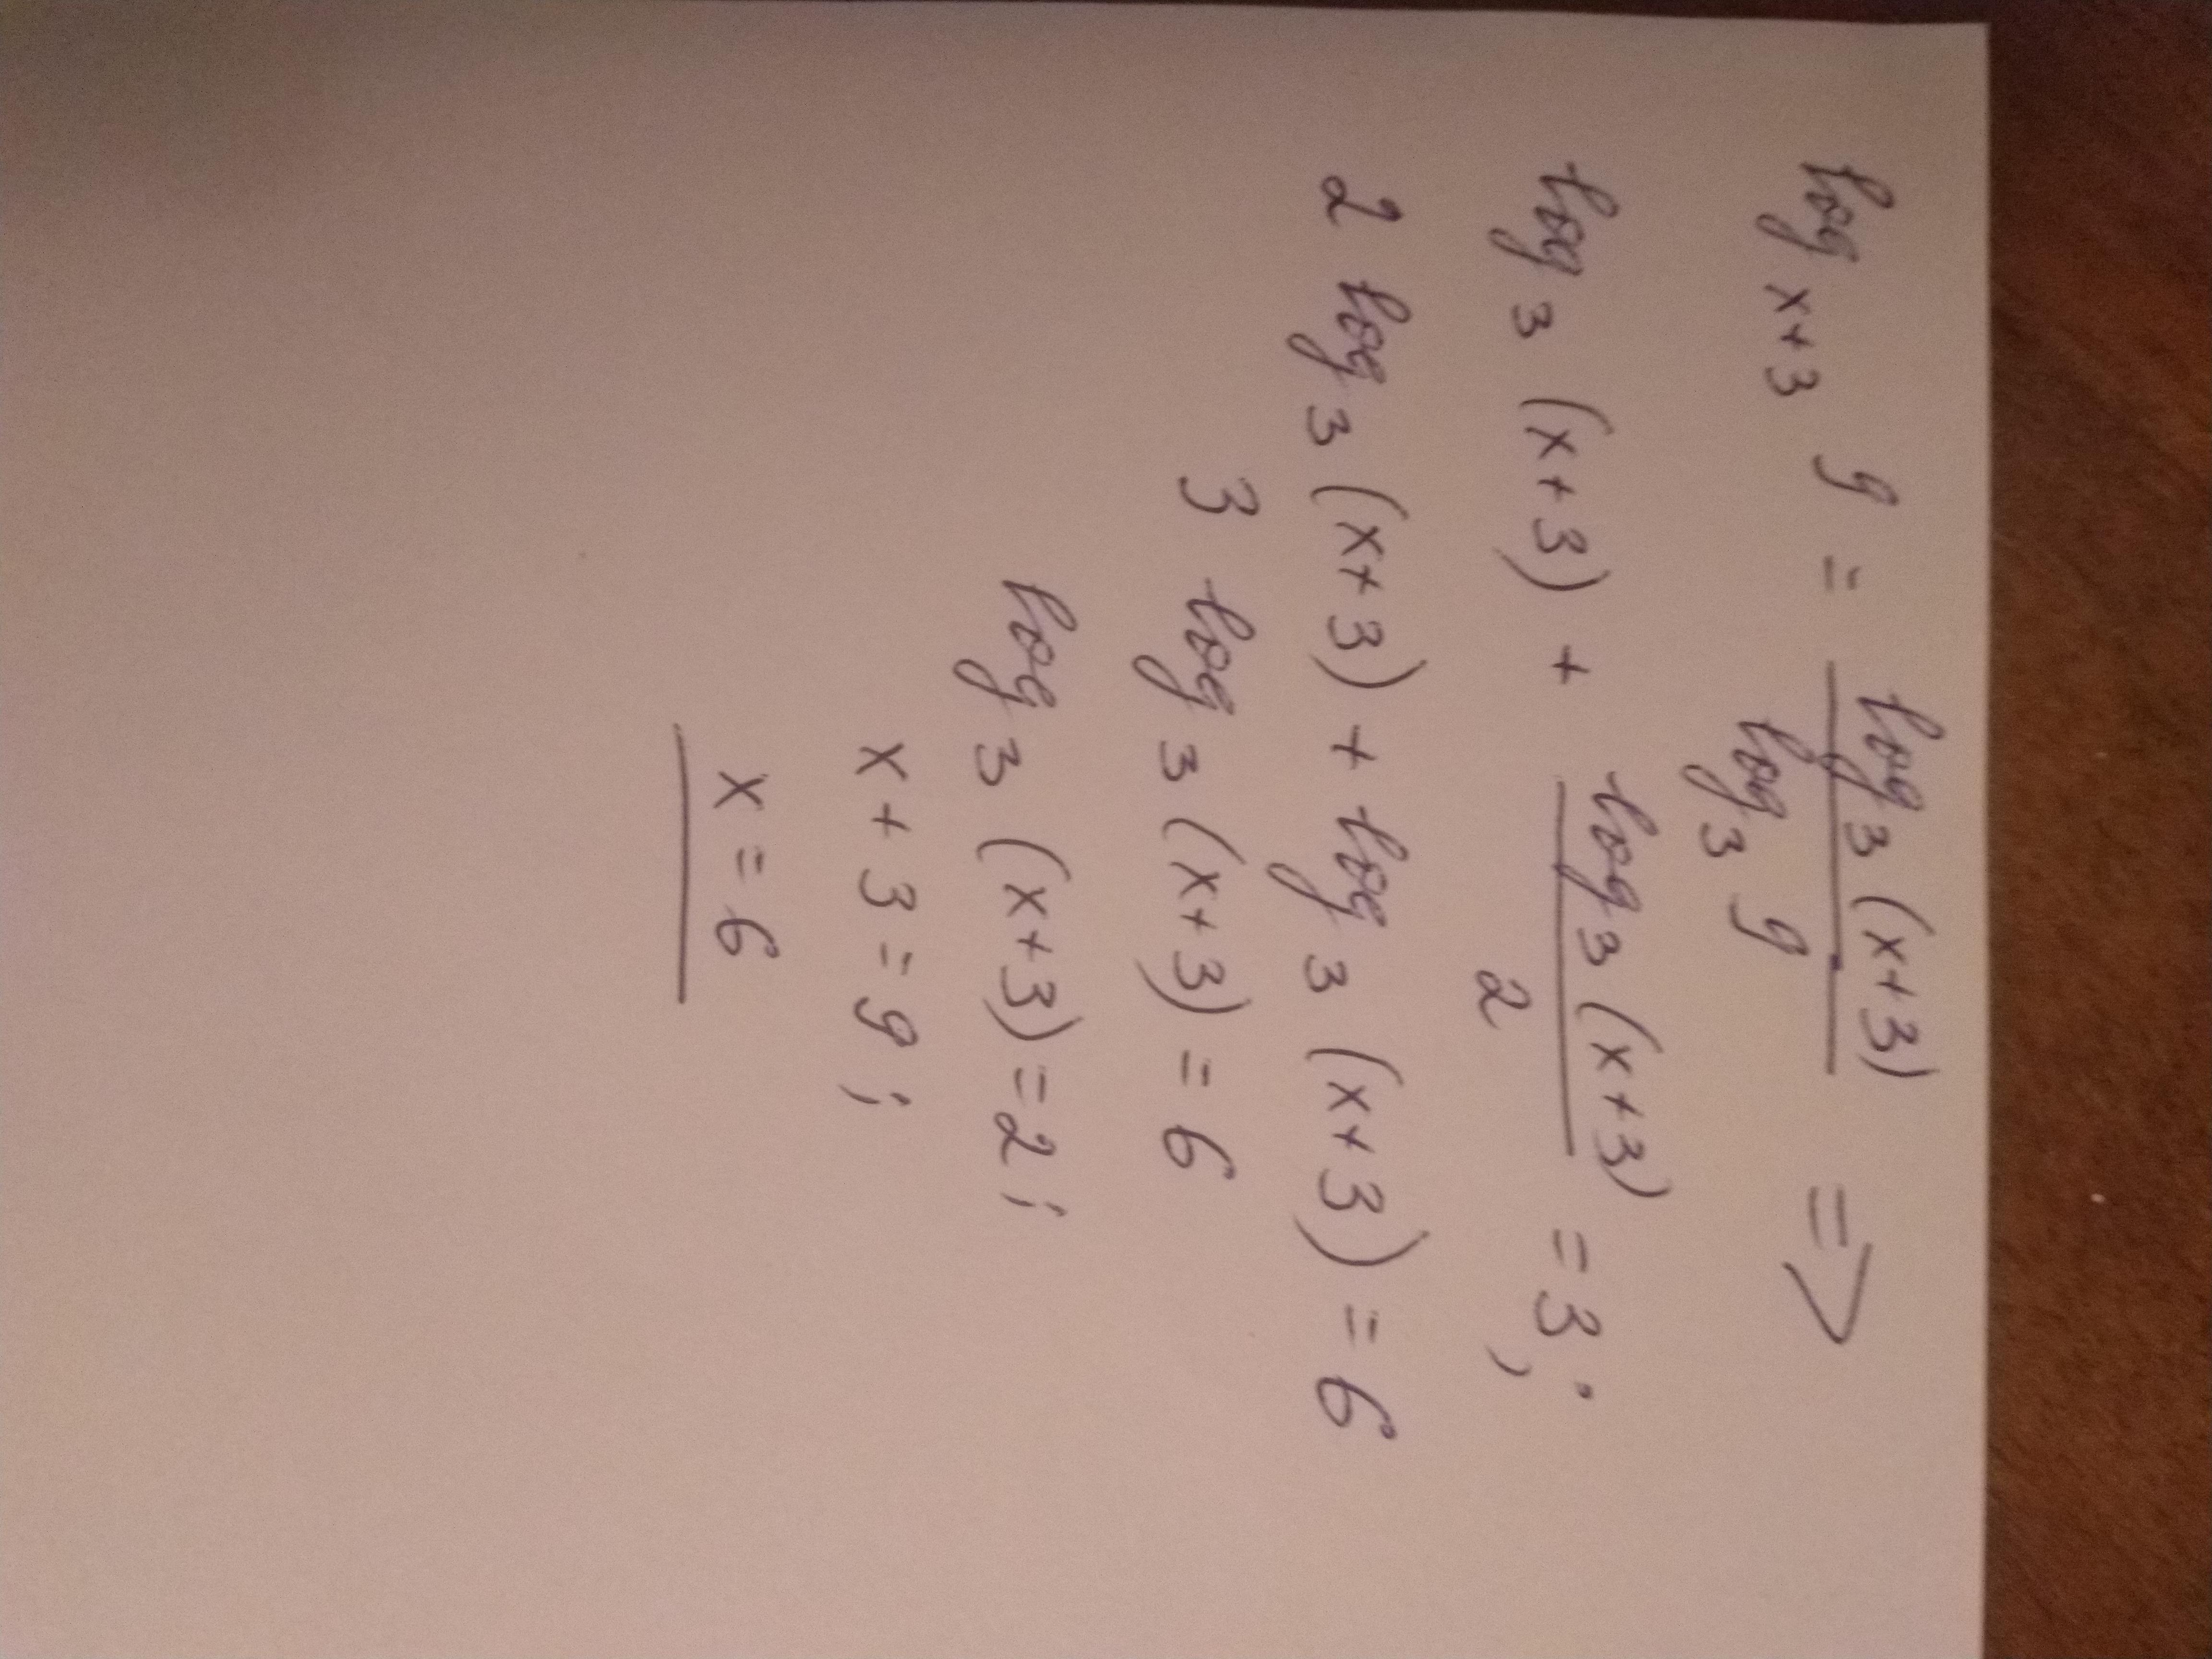 log x+3 9 = log 3 (x+3) / log 3 9 =>
log 3 (x+3) + log 3 (x+3) / 2 = 3;
2 log 3 (x+3) + log 3 (x+3) = 6
3 log 3 (x+3) = 6
log 3 (x+3) = 2;
x + 3 = 9;
x = 6